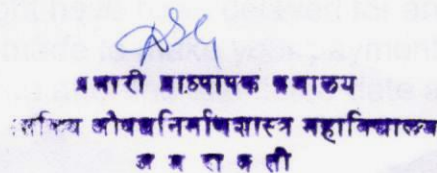 प्रभारी प्राध्यापक ग्रंथालय
शासकिय औषधनिर्माणशास्त्र महाविद्यालय
अमरावती